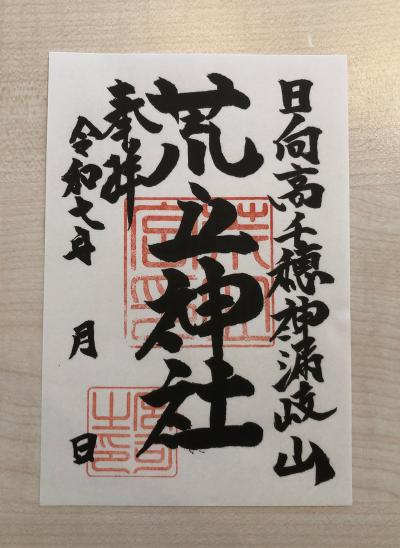 日向高千穂神漏岐山
荒立神社
奉拝
令和七年　月　日